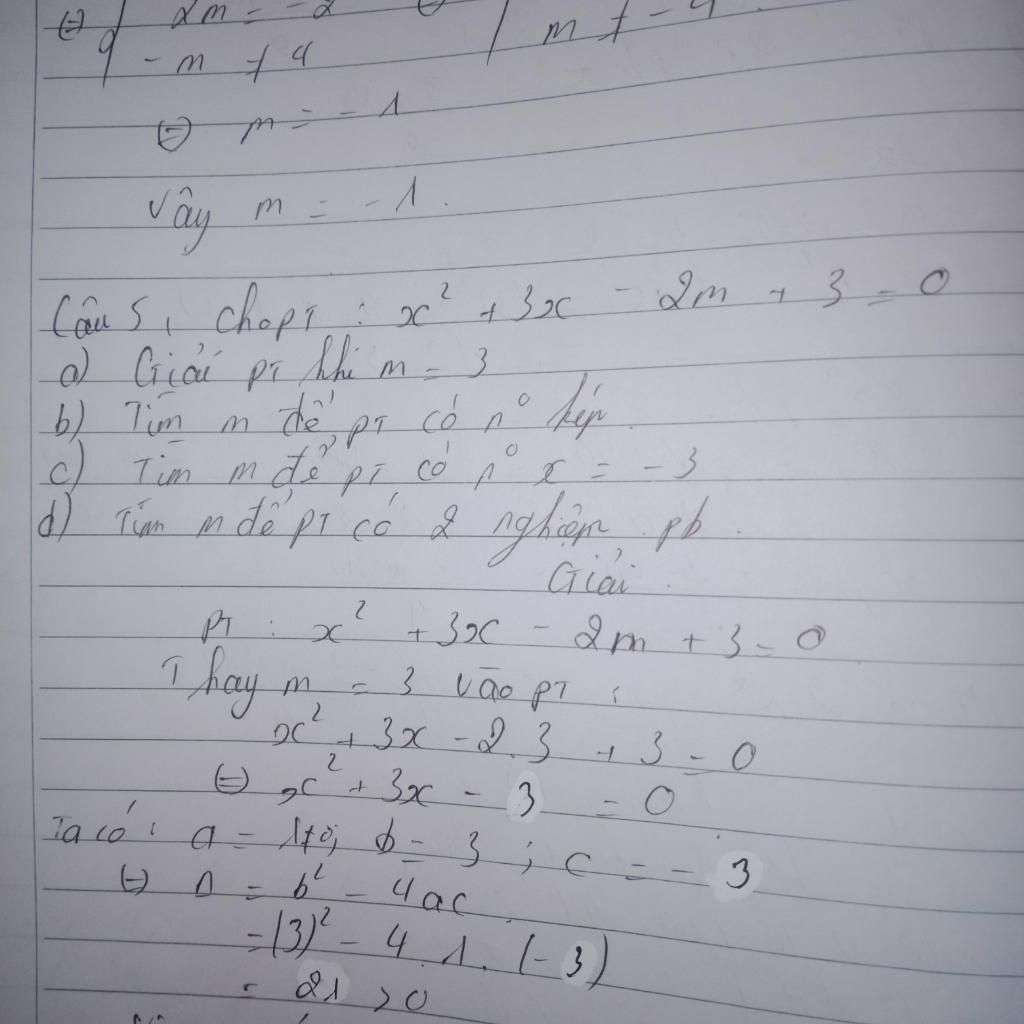 ⇔ { 2m = -2 ⇔
- m ≠ 4 { m ≠ -4.
⇔ m = -1
Vậy m = -1.
Câu 5, cho PT : x² + 3x - 2m + 3 = 0
a) Giải PT khi m = 3
b) Tìm m để PT có n⁰ kép.
c) Tìm m để PT có n⁰ x = -3
d) Tìm m để PT có 2 nghiệm pb.
Giải.
PT : x² + 3x - 2m + 3 = 0
Thay m = 3 vào PT :
x² + 3x - 2.3 + 3 = 0
⇔ x² + 3x - 3 = 0
Ta có : a = 1≠0; b = 3 ; c = -3
⇔ Δ = b² - 4ac
= (3)² - 4.1.(-3)
= 21 > 0